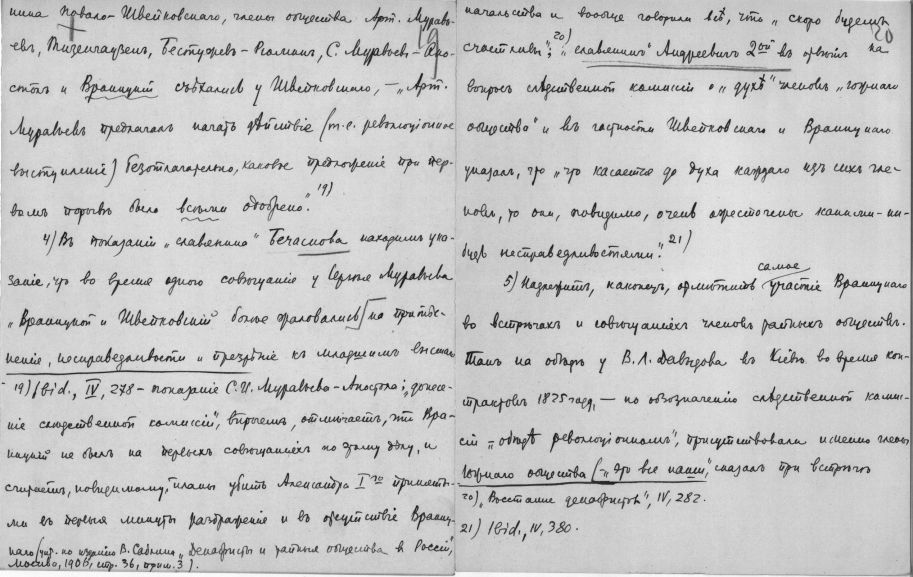 нина Повало-Швейковскаго, члены общества Арт. Муравь-
евъ, Тизенгаузенъ, Бестужевъ-Рюминъ, С. Муравьевъ-Апо-
столъ и Враницкiй съѣхались у Швейковскаго, — „Арт.
Муравьевъ предлагалъ начать дѣйствiе (т.е. революцiонное
выступленiе) безотлагательно, каковое предложенiе при пер-
вомъ порывѣ было всѣми одобрено."19)
4) Въ показанiи „славянина" Бечаснова находимъ ука-
занiе, что во время одного совѣщанiе у Сергея Муравьева
„Враницкой и Швейковскiй болѣе жаловались на притѣс-
ненiе, несправедливости и презрѣнiе къ младшимъ высшаго
19) Ibid., IV, 278 – показанiе С.И. Муравьева-Апостола; „донесе-
нiе следственной комиссiи", впрочемъ, отмѣчаетъ, что Вра-
ницкiй не былъ на первыхъ совѣщанiяхъ по этому дѣлу, и
считаетъ, повидимому, планы убить Александра Iго приняты-
ми въ первыя минуты раздраженiе и въ отсутствiе Враниц-
каго (цит. по изданiю В. Саблина „Декабристы и тайныя общества въ Россiи",
Москва, 1906, стр. 36, прим. 3).
20
начальства и вообще говорили всѣ, что „скоро будемъ
счастливы";20) „славянинъ" Андреевичъ 2ой въ отвѣтъ на
вопросъ слѣдственной комиссiи о „духѣ" членовъ „южнаго
общества" и въ частности Швейковскаго и Враницкаго
указалъ, что „что касается до духа каждаго изъ сихъ чле-
новъ, то они, повидимо, очень ожесточены какими-ни-
будь несправедливостями."21)
5) Надлежитъ, наконецъ, отмѣтить самое участiе Враницкаго
во встрѣчахъ и совѣщанiяхъ членовъ тайныхъ обществъ.
Такъ на обѣдѣ у В.Л. Давыдова въ Кiевѣ во время кон-
трактовъ 1825 года, — по обозначенiю слѣдственной комис-
сiи „обѣдѣ революцiонномъ", присутствовали именно члены
Южнаго общества („это все наши", сказалъ при встрѣчѣ
20) „Возстанiе декабристовъ", IV, 282.
21) Ibid., IV, 380.